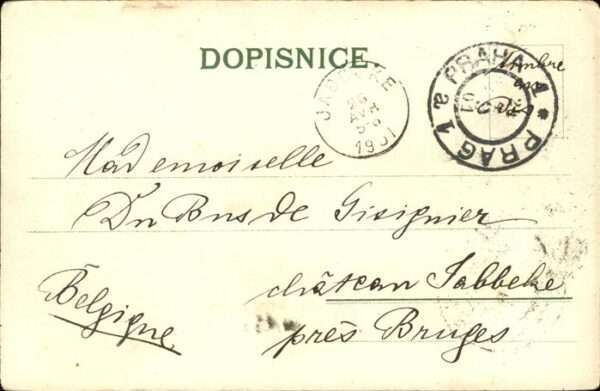 DOPISNICE.
JABBEKE
26
AVR
1901
PRAHA 1
Timbre
a 1
01
PRAG 1
Mademoiselle
Du Bus de Gisignier
château Jabbeke
Belgique
près Bruges